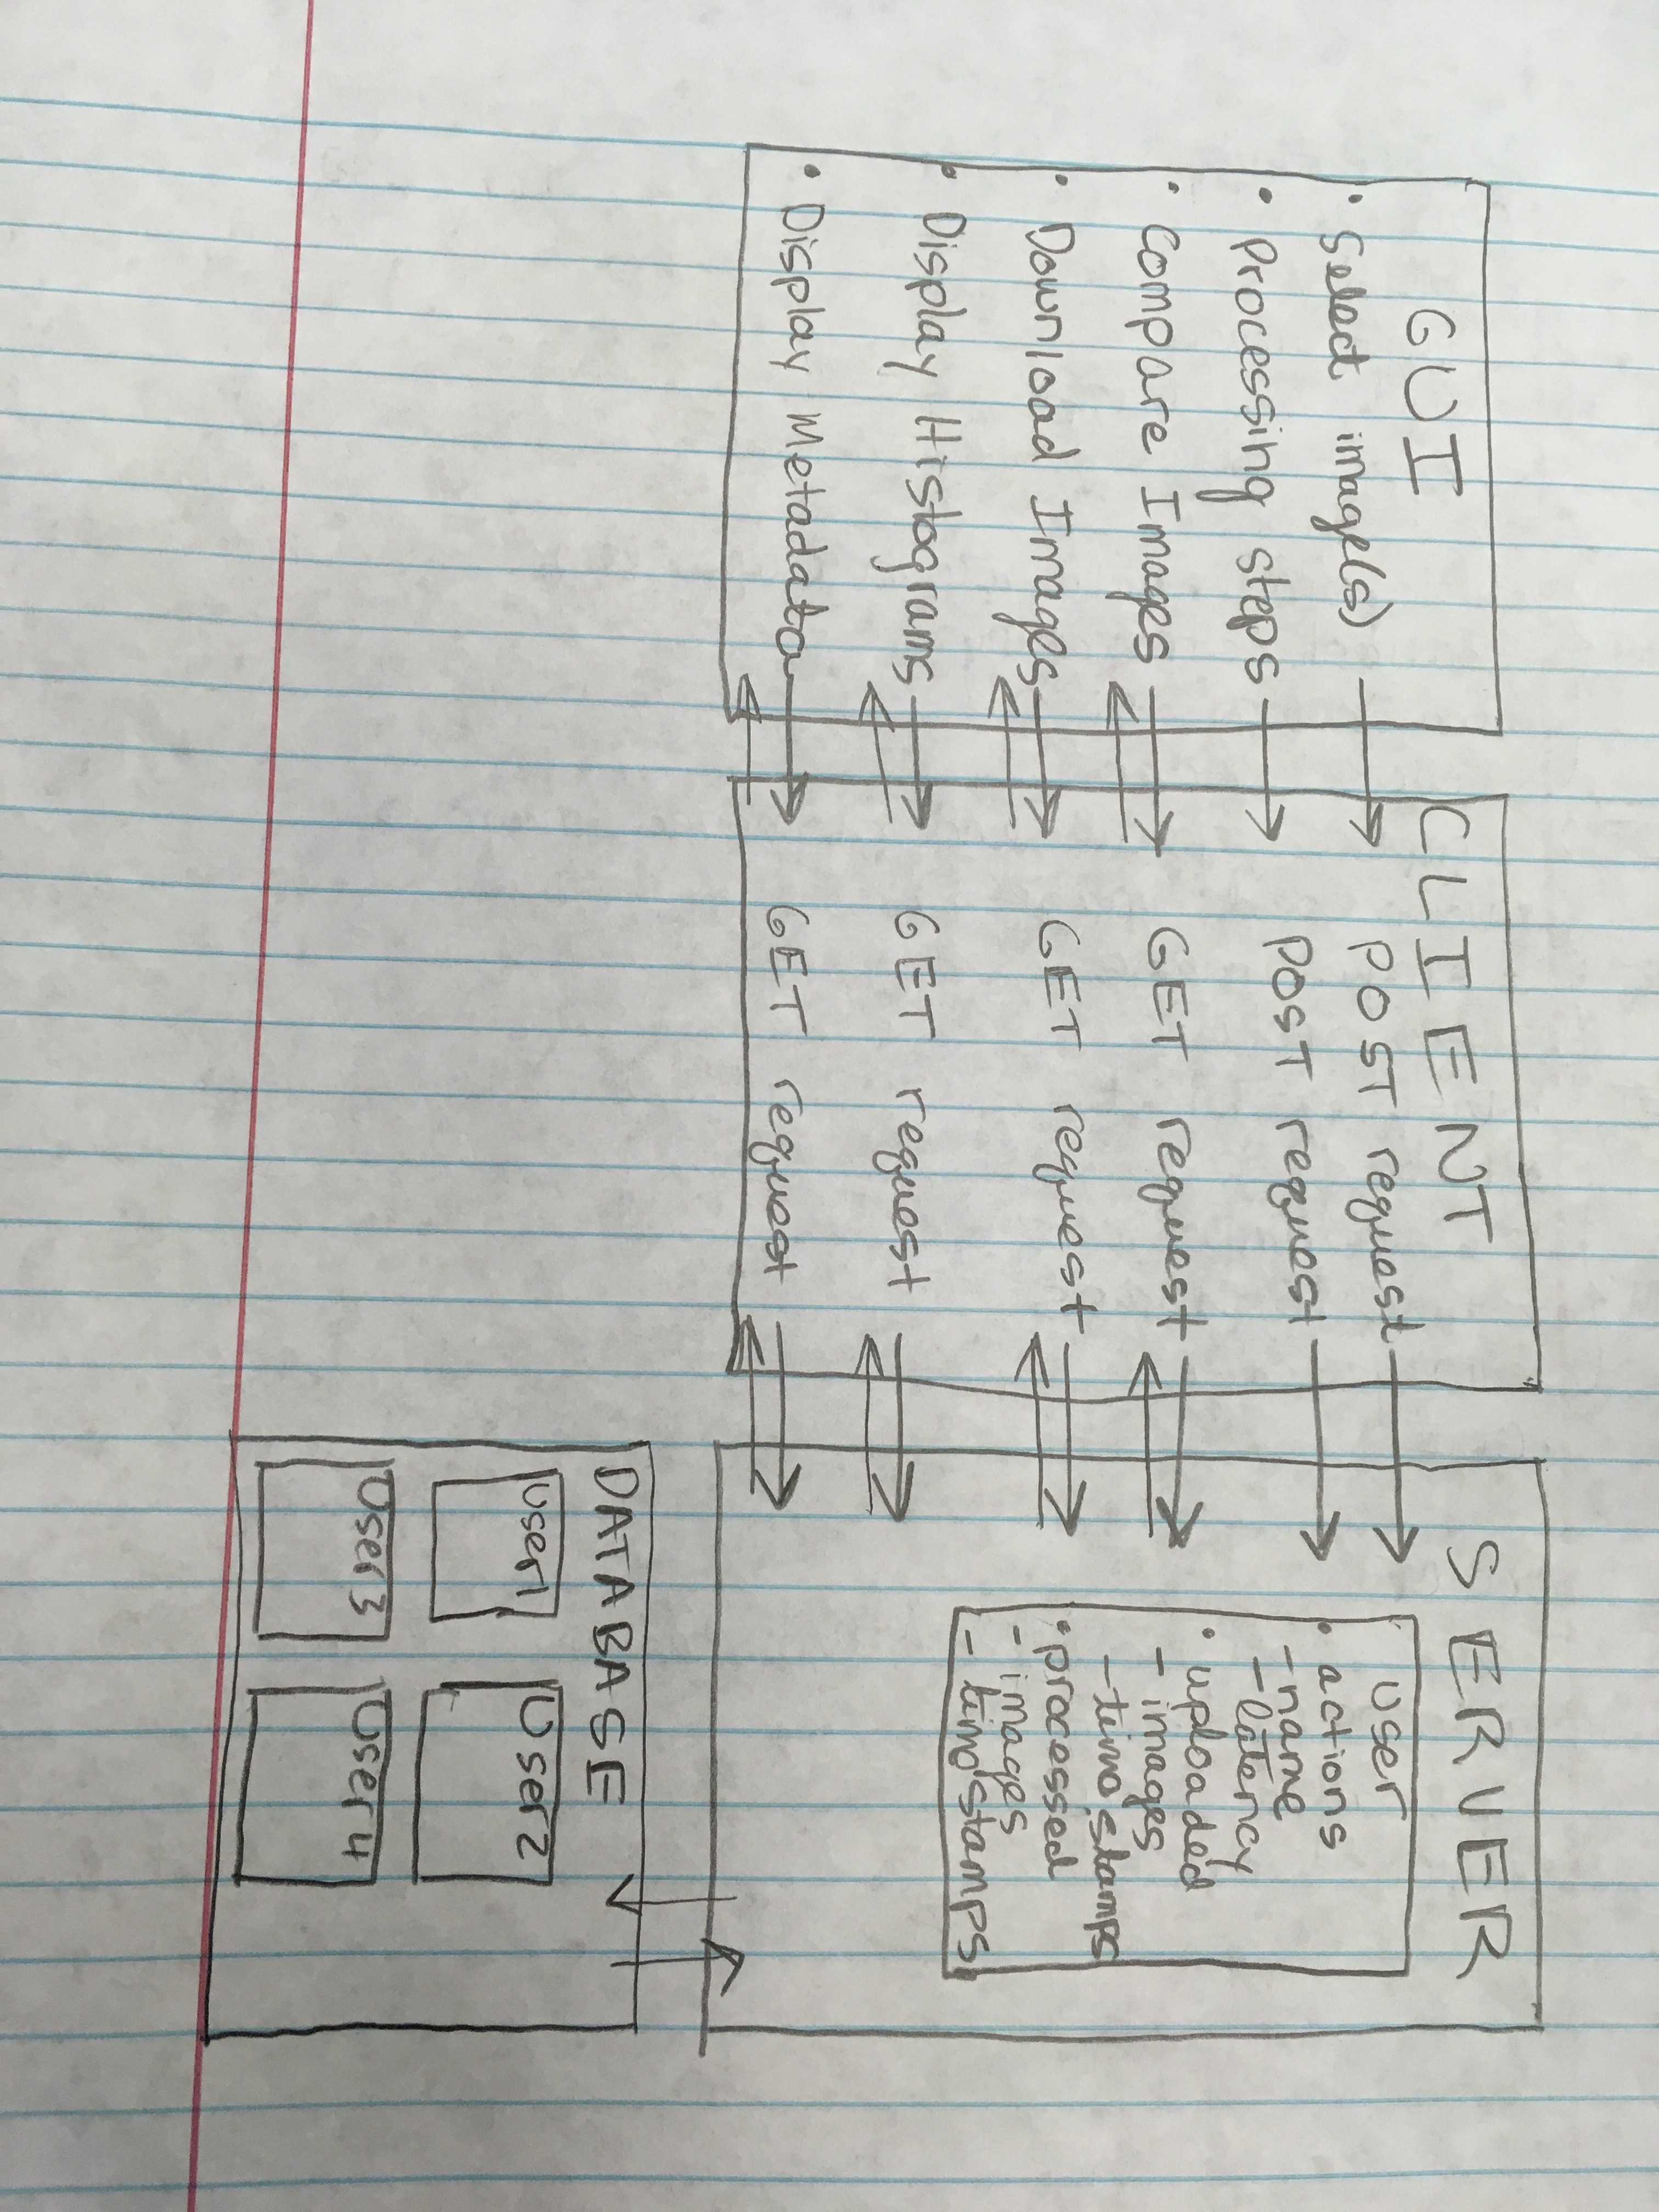 GUI
• Select image(s)
• Processing steps
• Compare Images
• Download Images
• Display Histograms
• Display Metadata
CLIENT
POST request
POST request
GET request
GET request
GET request
GET request
SERVER
User
• actions
- name
- latency
• uploaded
- images
- timestamps
• processed
- images
- timestamps
DATABASE
User1
User2
User3
User4